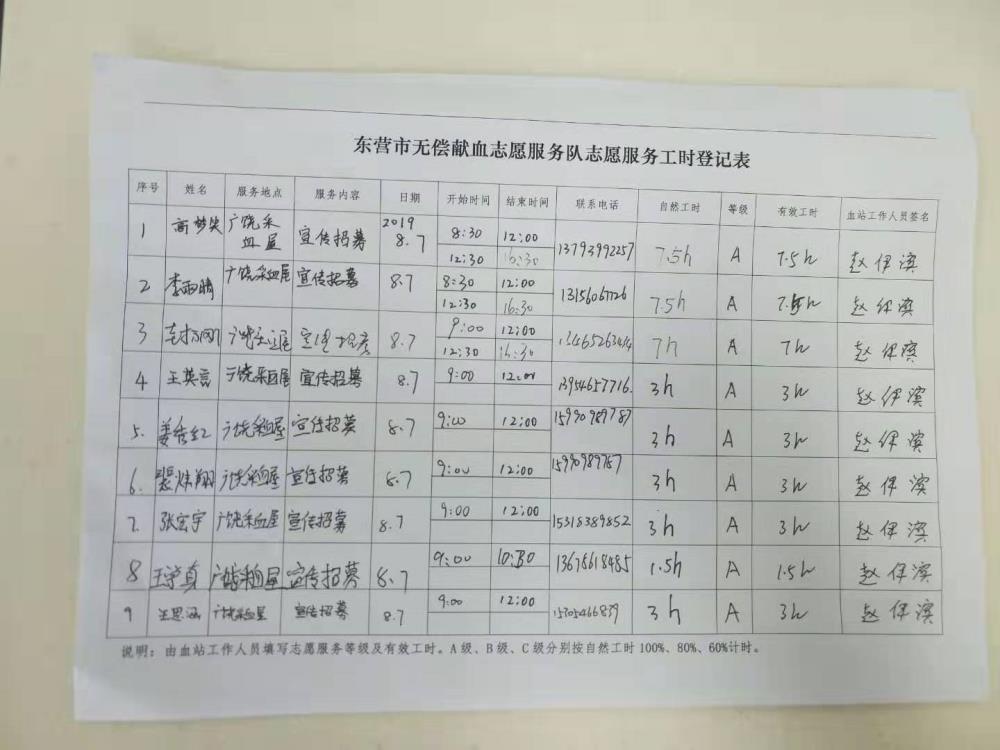 东营市无偿献血志愿服务队志愿服务工时登记表
序号 姓名 服务地点 服务内容 日期 开始时间 结束时间 联系电话 自然工时 等级 有效工时 血站工作人员签名
1 高梦笑 广饶采血屋 宣传招募 2019 8.7 8:30 12:00 13793992257 7.5h A 7.5h 赵伊滨
12:30 16:30
2 李雨晴 广饶采血屋 宣传招募 8.7 8:30 12:00 13156067726 7.5h A 7.5h 赵伊滨
12:30 16:30
3 8.7 9:00 12:00 7h A 7h 赵伊滨
12:30 16:30
4 王英言 广饶采血屋 宣传招募 8.7 9:00 12:00 13954657716. 3h A 3h 赵伊滨
5. 姜秀红 广饶采血屋 宣传招募 8.7 9:00 12:00 15990989787 3h A 3h 赵伊滨
6. 广饶采血屋 宣传招募 8.7 9:00 12:00 15990989787 3h A 3h 赵伊滨
7. 张宏宇 广饶采血屋 宣传招募 8.7 9:00 12:00 15318389852 3h A 3h 赵伊滨
8 广饶采血屋 宣传招募 8.7 9:00 10:30 13678618485 1.5h A 1.5h 赵伊滨
9 王思涵 广饶采血屋 宣传招募 8.7 9:00 12:00 3h A 3h 赵伊滨
说明：由血站工作人员填写志愿服务等级及有效工时。A级、B级、C级分别按自然工时100%、80%、60%计时。